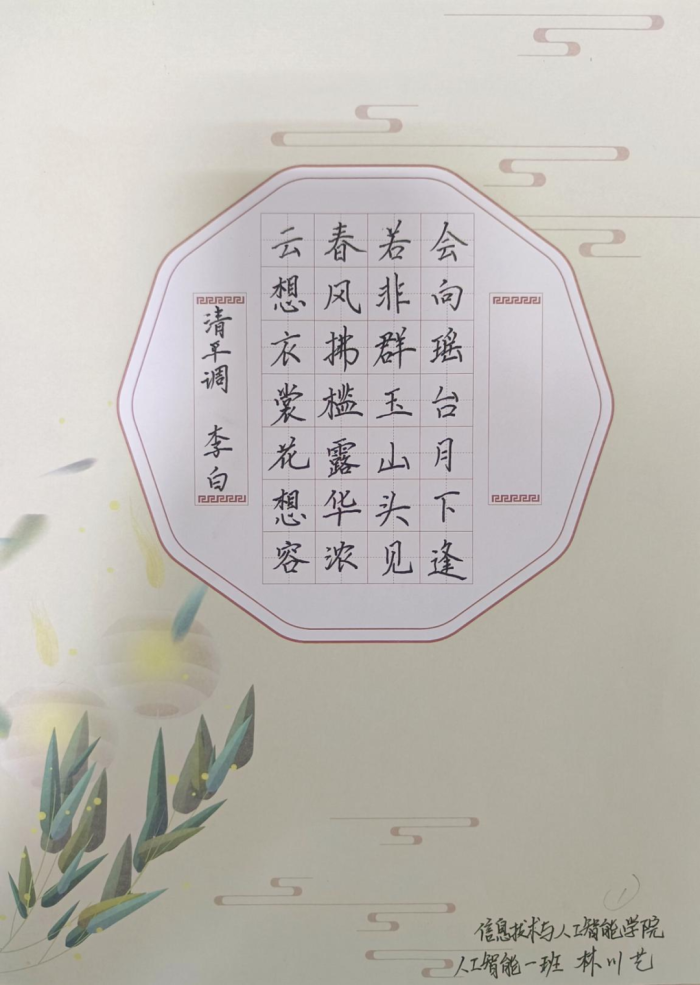 清平调 李白
云想衣裳花想容
春风拂槛露华浓
若非群玉山头见
会向瑶台月下逢
信息技术与人工智能学院
人工智能一班 林川艺